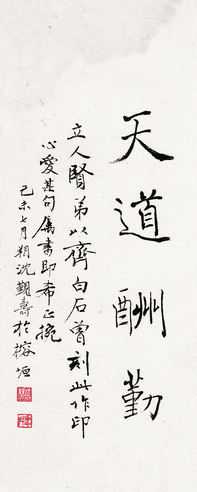 天道酬勤
立人賢弟以齊白石曾刻此作印
心愛其句屬書即希正挽
己未七月朔沈覲壽於榕垣